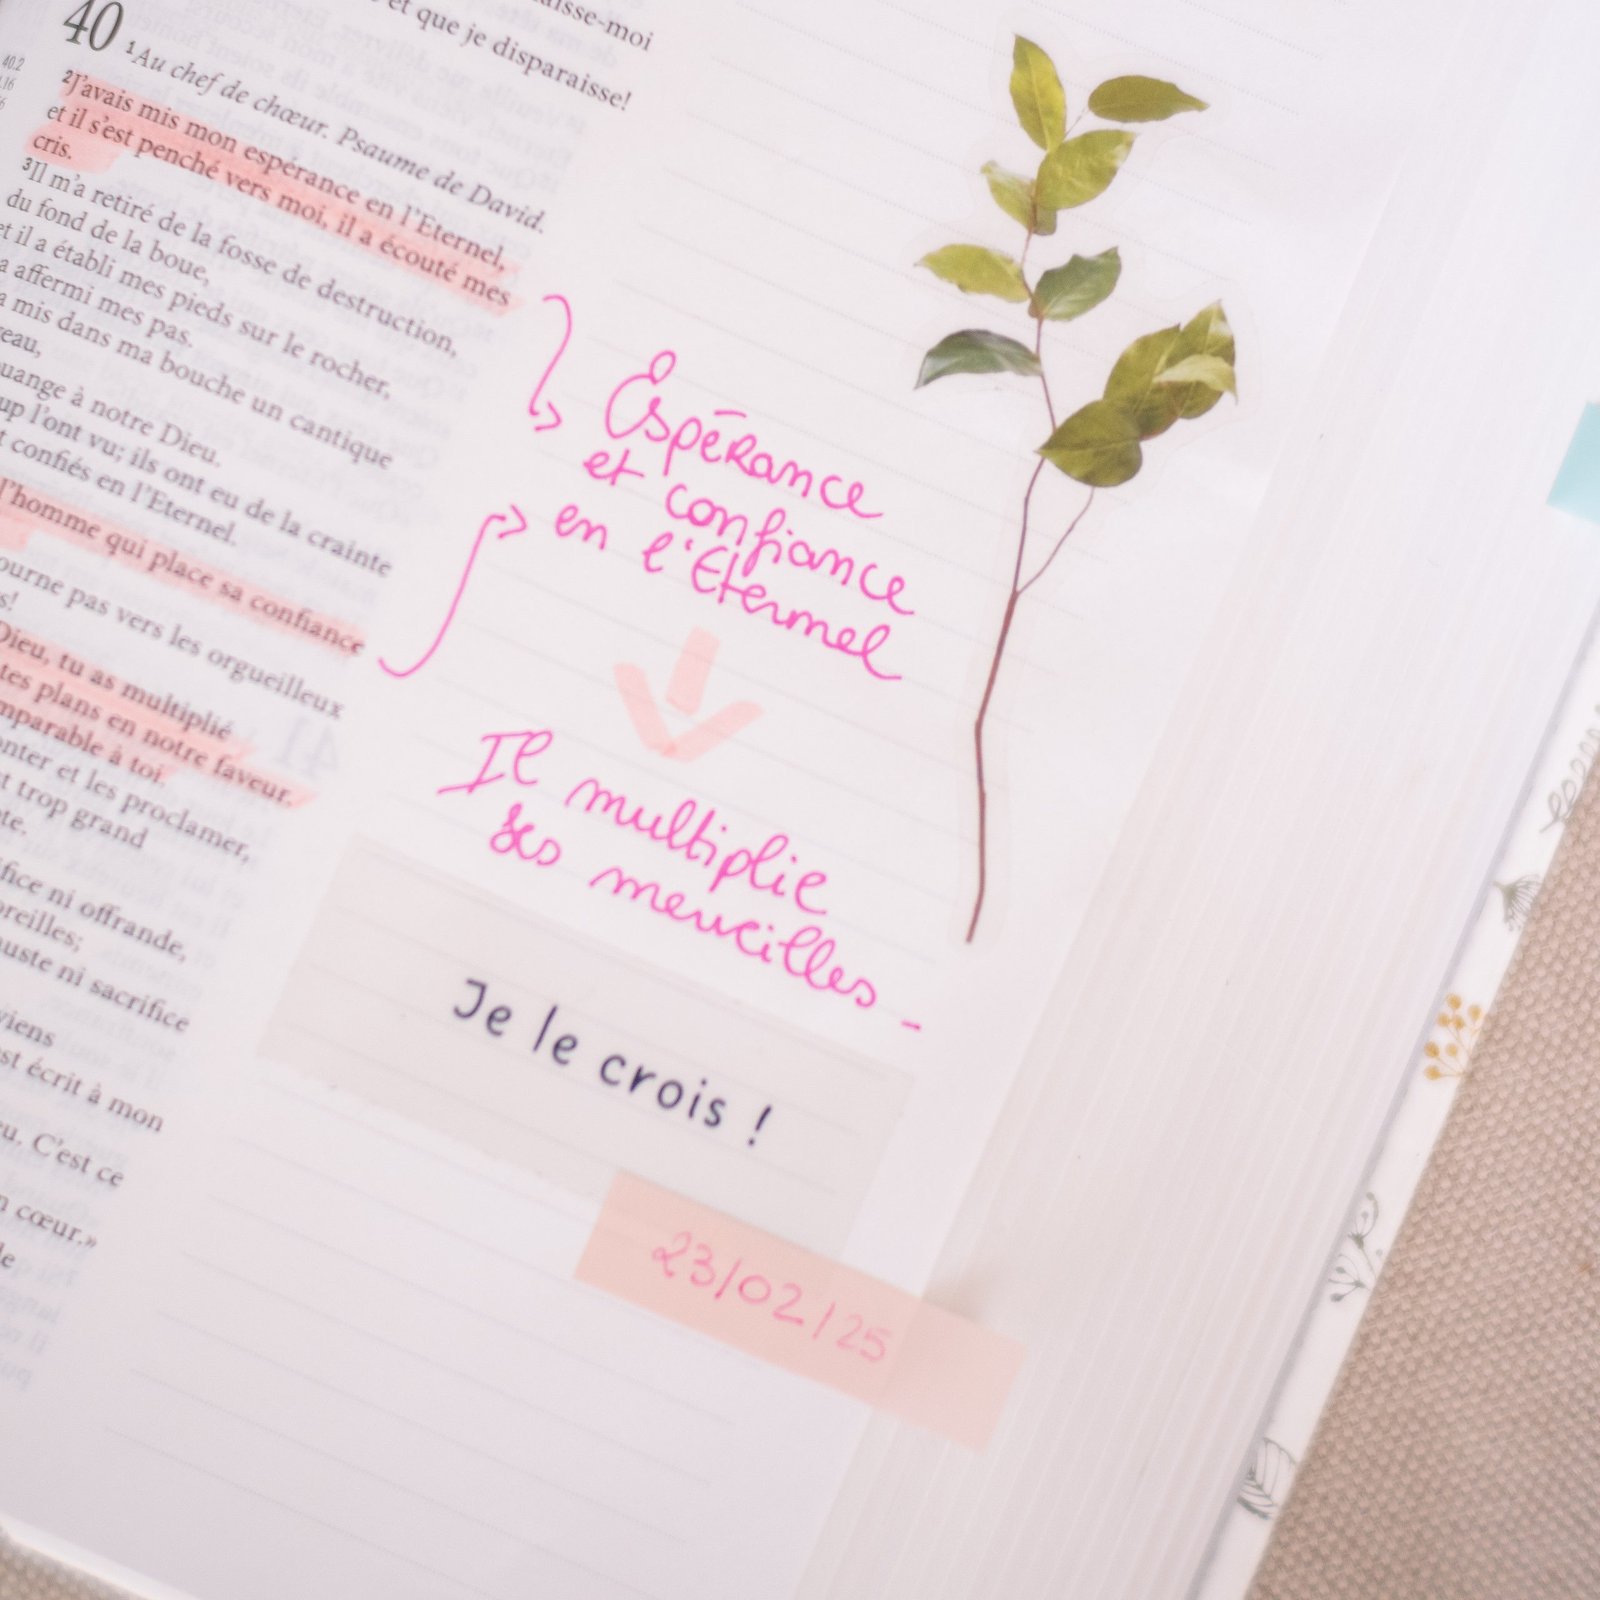 et que je disparaisse!
40
¹Au chef de chœur. Psaume de David.
²J'avais mis mon espérance en l'Eternel,
et il s'est penché vers moi, il a écouté mes
cris.
³Il m'a retiré de la fosse de destruction,
du fond de la boue,
et il a établi mes pieds sur le rocher,
a affermi mes pas.
a mis dans ma bouche un cantique
eau,
uange à notre Dieu.
up l'ont vu; ils ont eu de la crainte
t confiés en l'Eternel.
l'homme qui place sa confiance
ourne pas vers les orgueilleux
s!
Dieu, tu as multiplié
tes plans en notre faveur.
mparable à toi.
onter et les proclamer,
t trop grand
te.
fice ni offrande,
oreilles;
auste ni sacrifice
viens
st écrit à mon
eu. C'est ce
n cœur.»
40.2
Espérance
et confiance
en l'Eternel
Il multiplie
ses merveilles -
Je le crois !
23/02/25